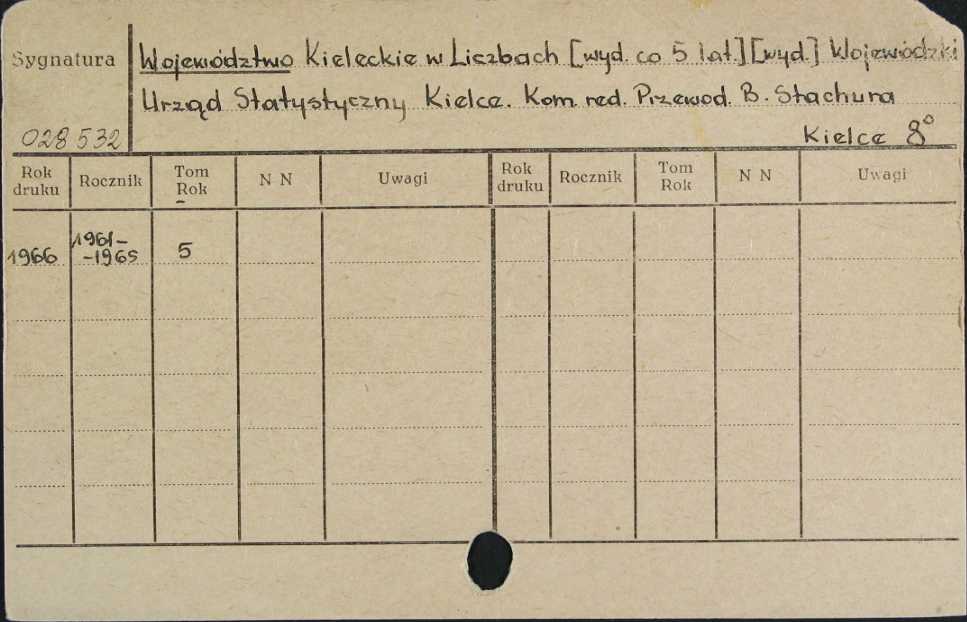 Sygnatura
Województwo Kieleckie w Liczbach [wyd. co 5 lat.] [wyd.] Wojewódzki
Urząd Statystyczny Kielce. Kom. red. Przewod. B. Stachura
028532
Kielce 8°
Rok druku Rocznik Tom Rok N N Uwagi Rok druku Rocznik Tom Rok N N Uwagi
1966 1961- -1965 5